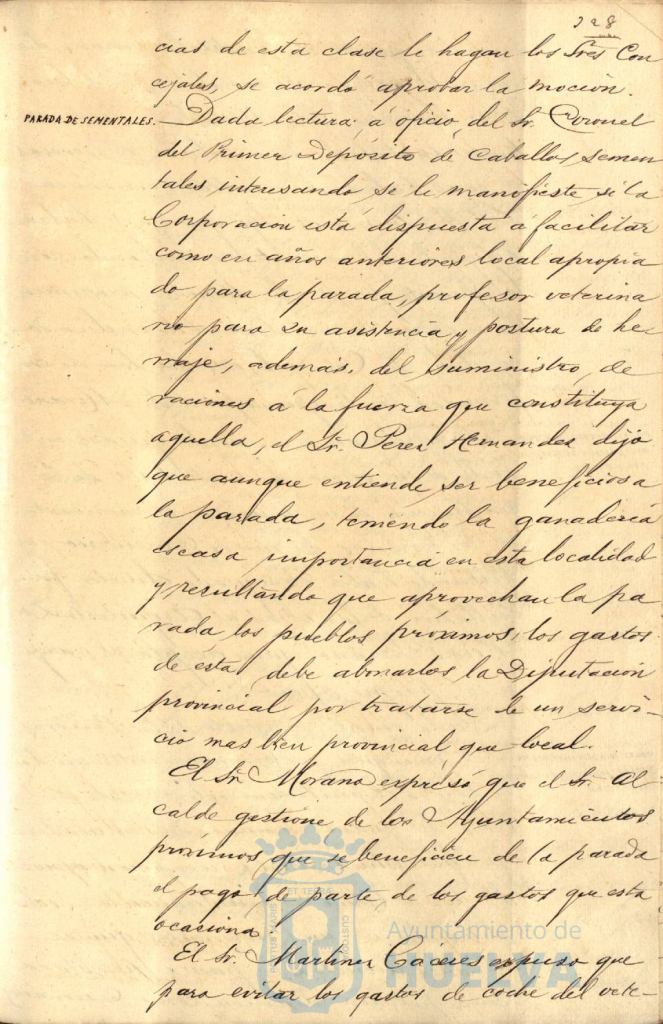 328
cias de esta clase le hagan los Sres Con
cejales, se acordó aprobar la moción.
PARADA DE SEMENTALES.
Dada lectura á oficio del Sr. Coronel
del Primer Depósito de Caballos semen
tales interesando se le manifieste si la
Corporacion está dispuesta á facilitar
como en años anteriores local apropia
do para la parada, profesor veterina
rio para su asistencia y postura de he-
rraje, además, del suministro de
raciones á la fuerza que constituya
aquella, el Sr. Perez Hernandez dijo
que aunque entiende ser beneficiosa
la parada, teniendo la ganadería
escasa importancia en esta localidad
y resultando que aprovechan la pa-
rada los pueblos próximos, los gastos
de ésta debe abonarlos la Diputación
provincial por tratarse de un servi-
cio mas bien provincial que local.
El Sr. Morano expresó que el Sr. Al
calde gestione de los Ayuntamientos
próximos que se beneficien de la parada
el pago de parte de los gastos que esta
ocasiona
El Sr. Martinez Cáceres expuso que
para evitar los gastos de coche del vete-
Ayuntamiento de
HUELVA